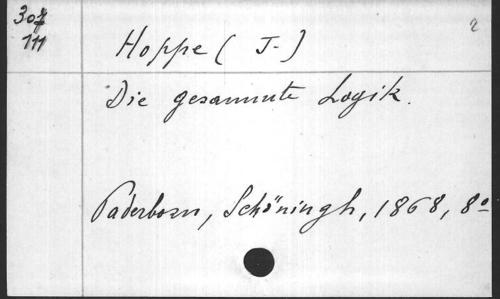 307
111
2
Hoppe ( J- )
Die gesammte Logik.
Paderborn, Schöningh, 1868, 8º